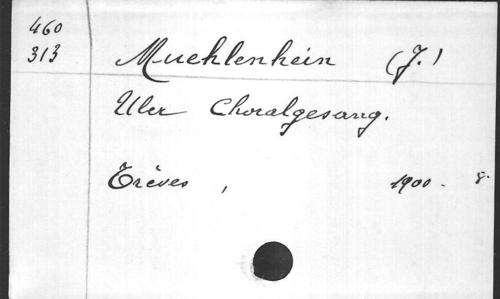 460
313
Muehlenhein (J.)
Uler Choralgesang.
Trèves, 1900. 8.